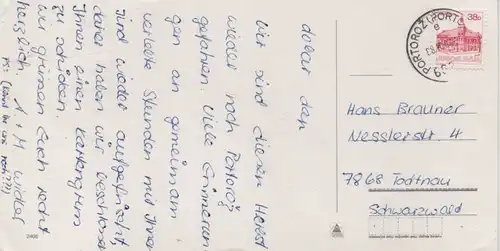 dober dan
Wir sind diesen Herbst
wieder nach Portorož
gefahren. Viele Erinnerun
gen an gemeinsam
verlebte Stunden mit Ihnen
sind wieder aufgefrischt
daher haben wir beschlossen
Ihnen einen Kartengruss
zu schicken.
Wir grüssen Euch recht
herzlich.
PS: (kennt Ihr uns noch??!)
PORTOROŽ (PORTO
380
Hans Brauner
Nesslerstr. 4
7868 Todtnau
Schwarzwald
2406